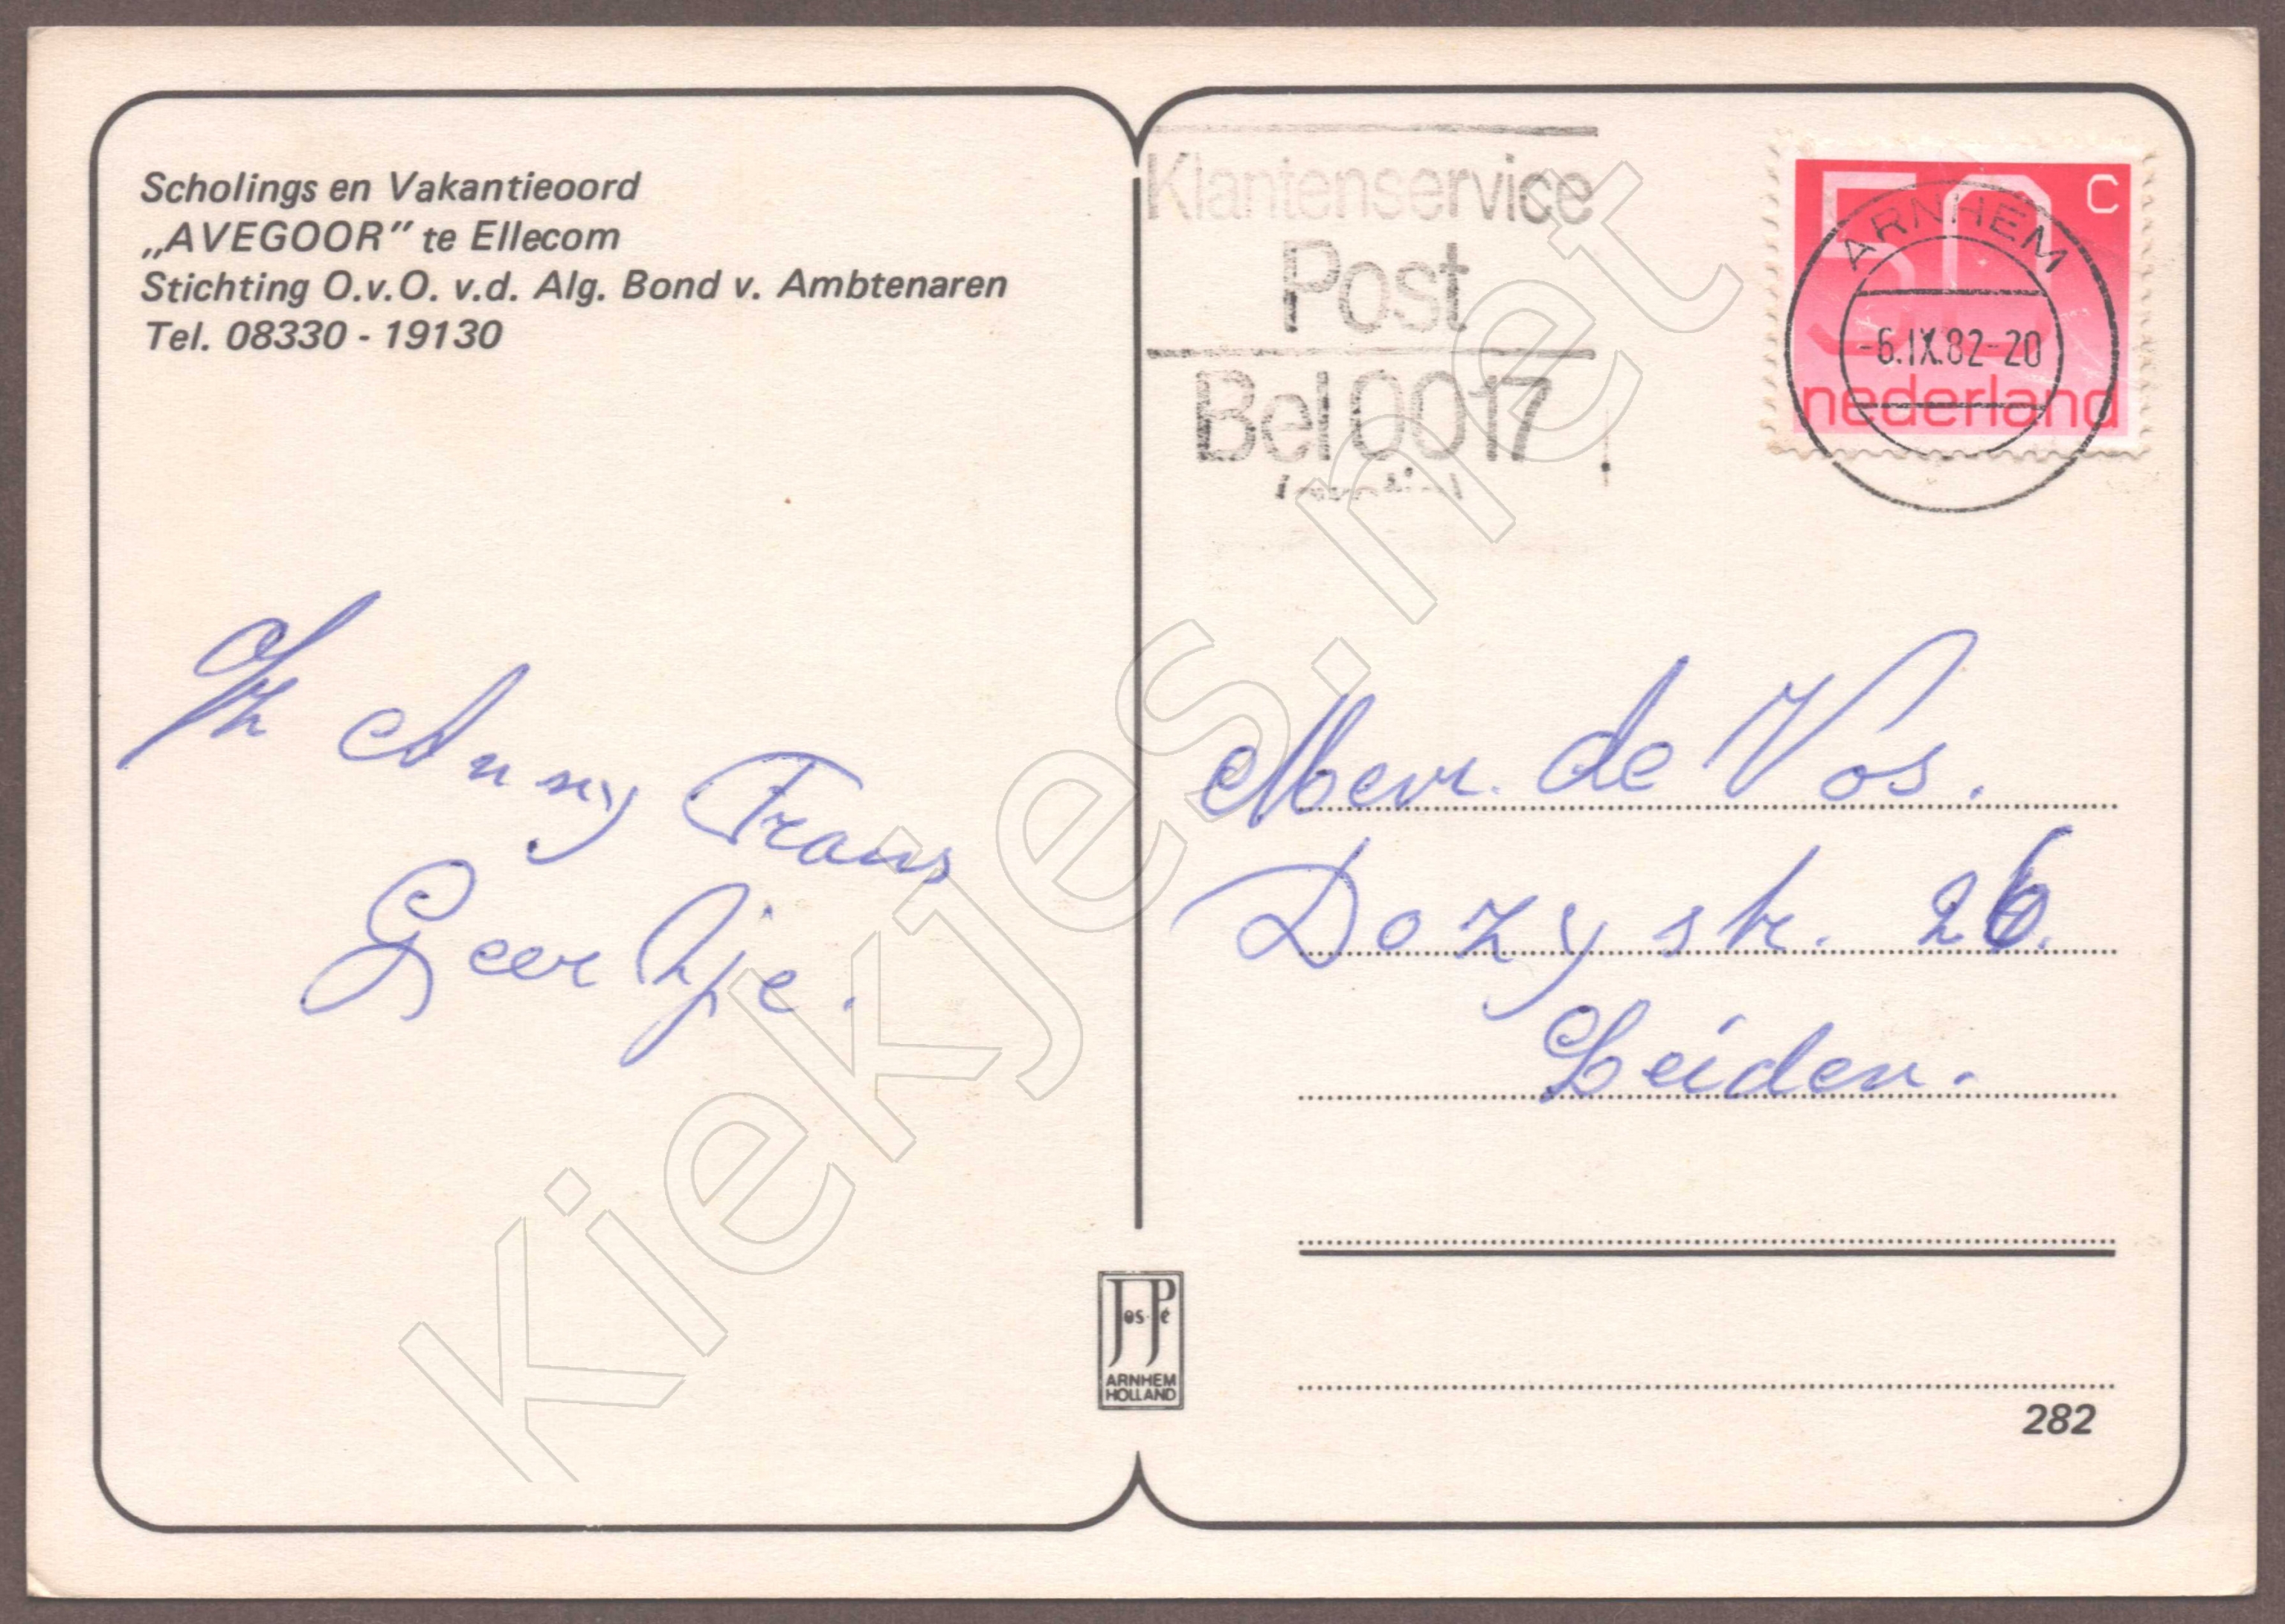 Scholings en Vakantieoord
„AVEGOOR” te Ellecom
Stichting O.v.O. v.d. Alg. Bond v. Ambtenaren
Tel. 08330 - 19130
Klantenservice
Post
Bel 0017
50 C
nederland
ARNHEM
-6.IX.82-20
Anny Frans
Geertje.
Mevr. de Vos.
Dozystr. 26.
Leiden.
Jos-Pé
ARNHEM
HOLLAND
282
Kiekjes.net